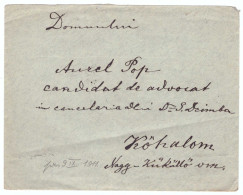 Domnului
Aurel Pop
candidat de advocat
in cancelaria dlui Dr.
Kőhalom
Nagy-Küküllő vm.